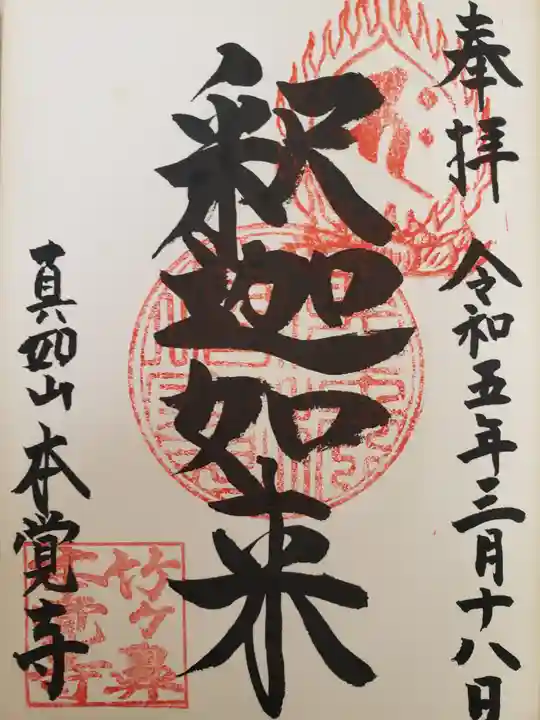 奉拝 令和五年三月十八日
釈迦如来
真如山 本覚寺
竹ヶ鼻
本覚寺